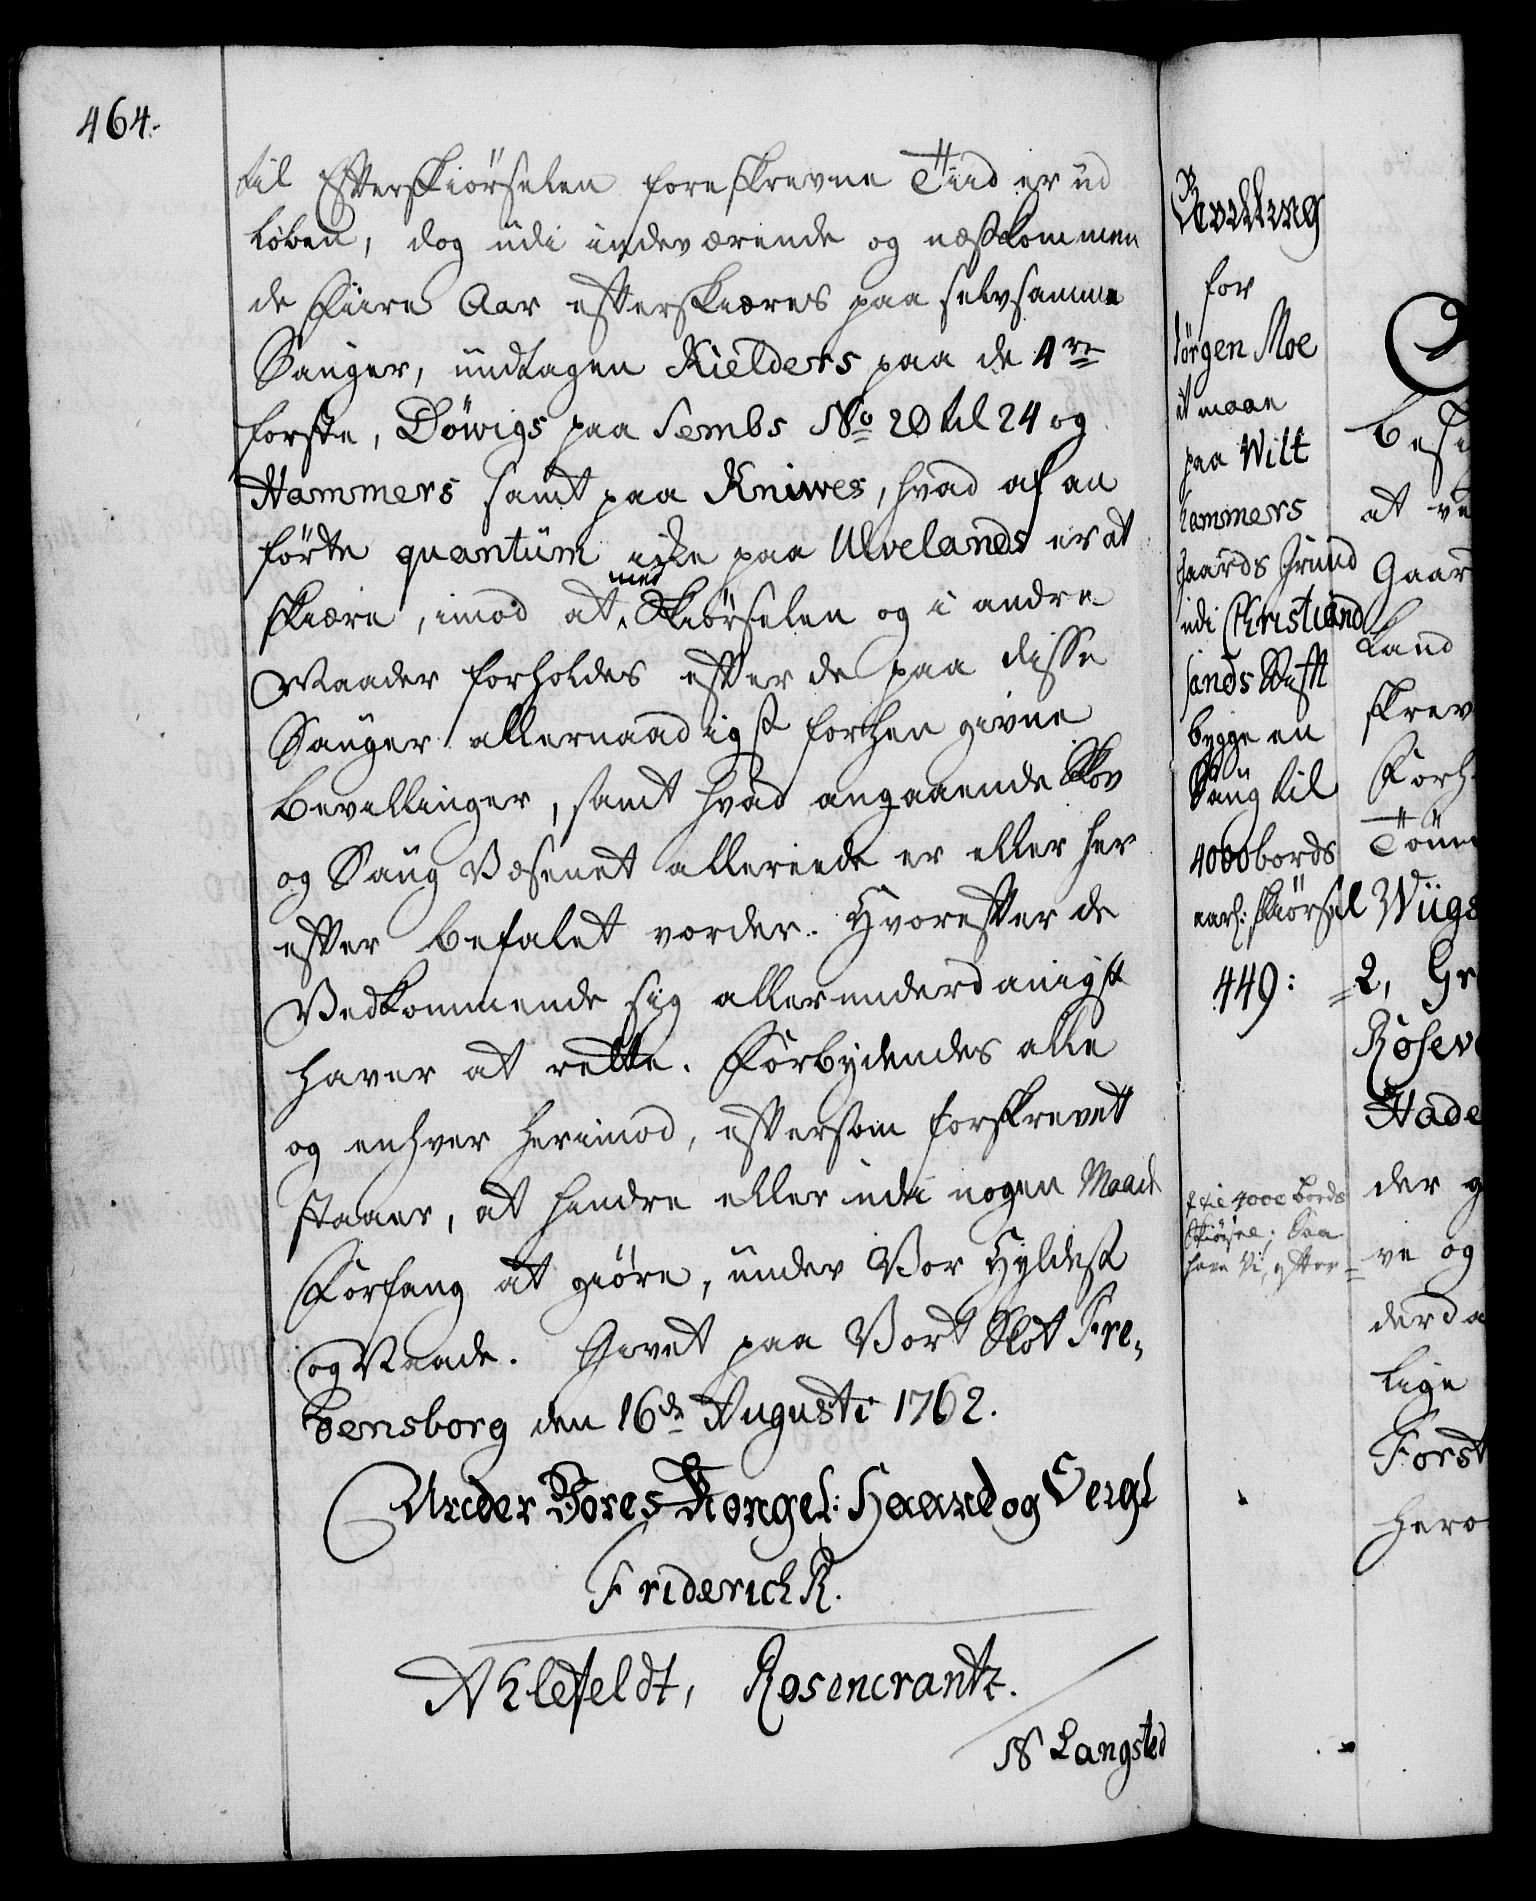 464.
til Efterskiørselen foreskrevne Tiid er ud
løben, dog udi indeværende og nestkommen
de Fiire Aar efterskiæres paa selvsamme
Sauger, undtagen Kielders paa de 4re
første, Döwigs paa Sembs No 20 til 24 og
Hammers samt paa Kniwes, hvad af an
førte quantum icke paa Ulvelands er at
skiære, imod at med Skiørselen og i andre
Maader forholdes efter de paa disse
Sauger allernaadigst forhen givne
bevillinger, samt hvad angaaende Skov
og Saug Væsenet allereede er eller her
efter befalet vorder. Hvorefter de
Vedkommende sig allerunderdanigst
haver at rette. Forbydendes alle
og enhver herimod, eftersom forskrevet
staaer, at hindre eller udi nogen Maade
Forfang at giøre, under Vor Hyldest
og Naade. Givet paa Vort Slot Fre,
densborg den 16de Augusti 1762.
Under Vores Kongel: Haand og Seigl
Friderich R.
Ahlefeldt, Rosencrantz.
N Langsted
Bevilling
for
Jörgen Moe
at maae
paa Wilt
hammers
Gaards Grund
udi Christiand
sands Stift
bygge en
Saug til
4000 bords
aarl: skiørsel
449:
til 4000 bords
Skiørsel; Saa
have Vi, efter
besi
at ve
Gaar
Land
skrev
Forh
Tönn
Wiigs
2, Gr
Rosev
Hade
der g
ve og
derda
lige
Forst
hero